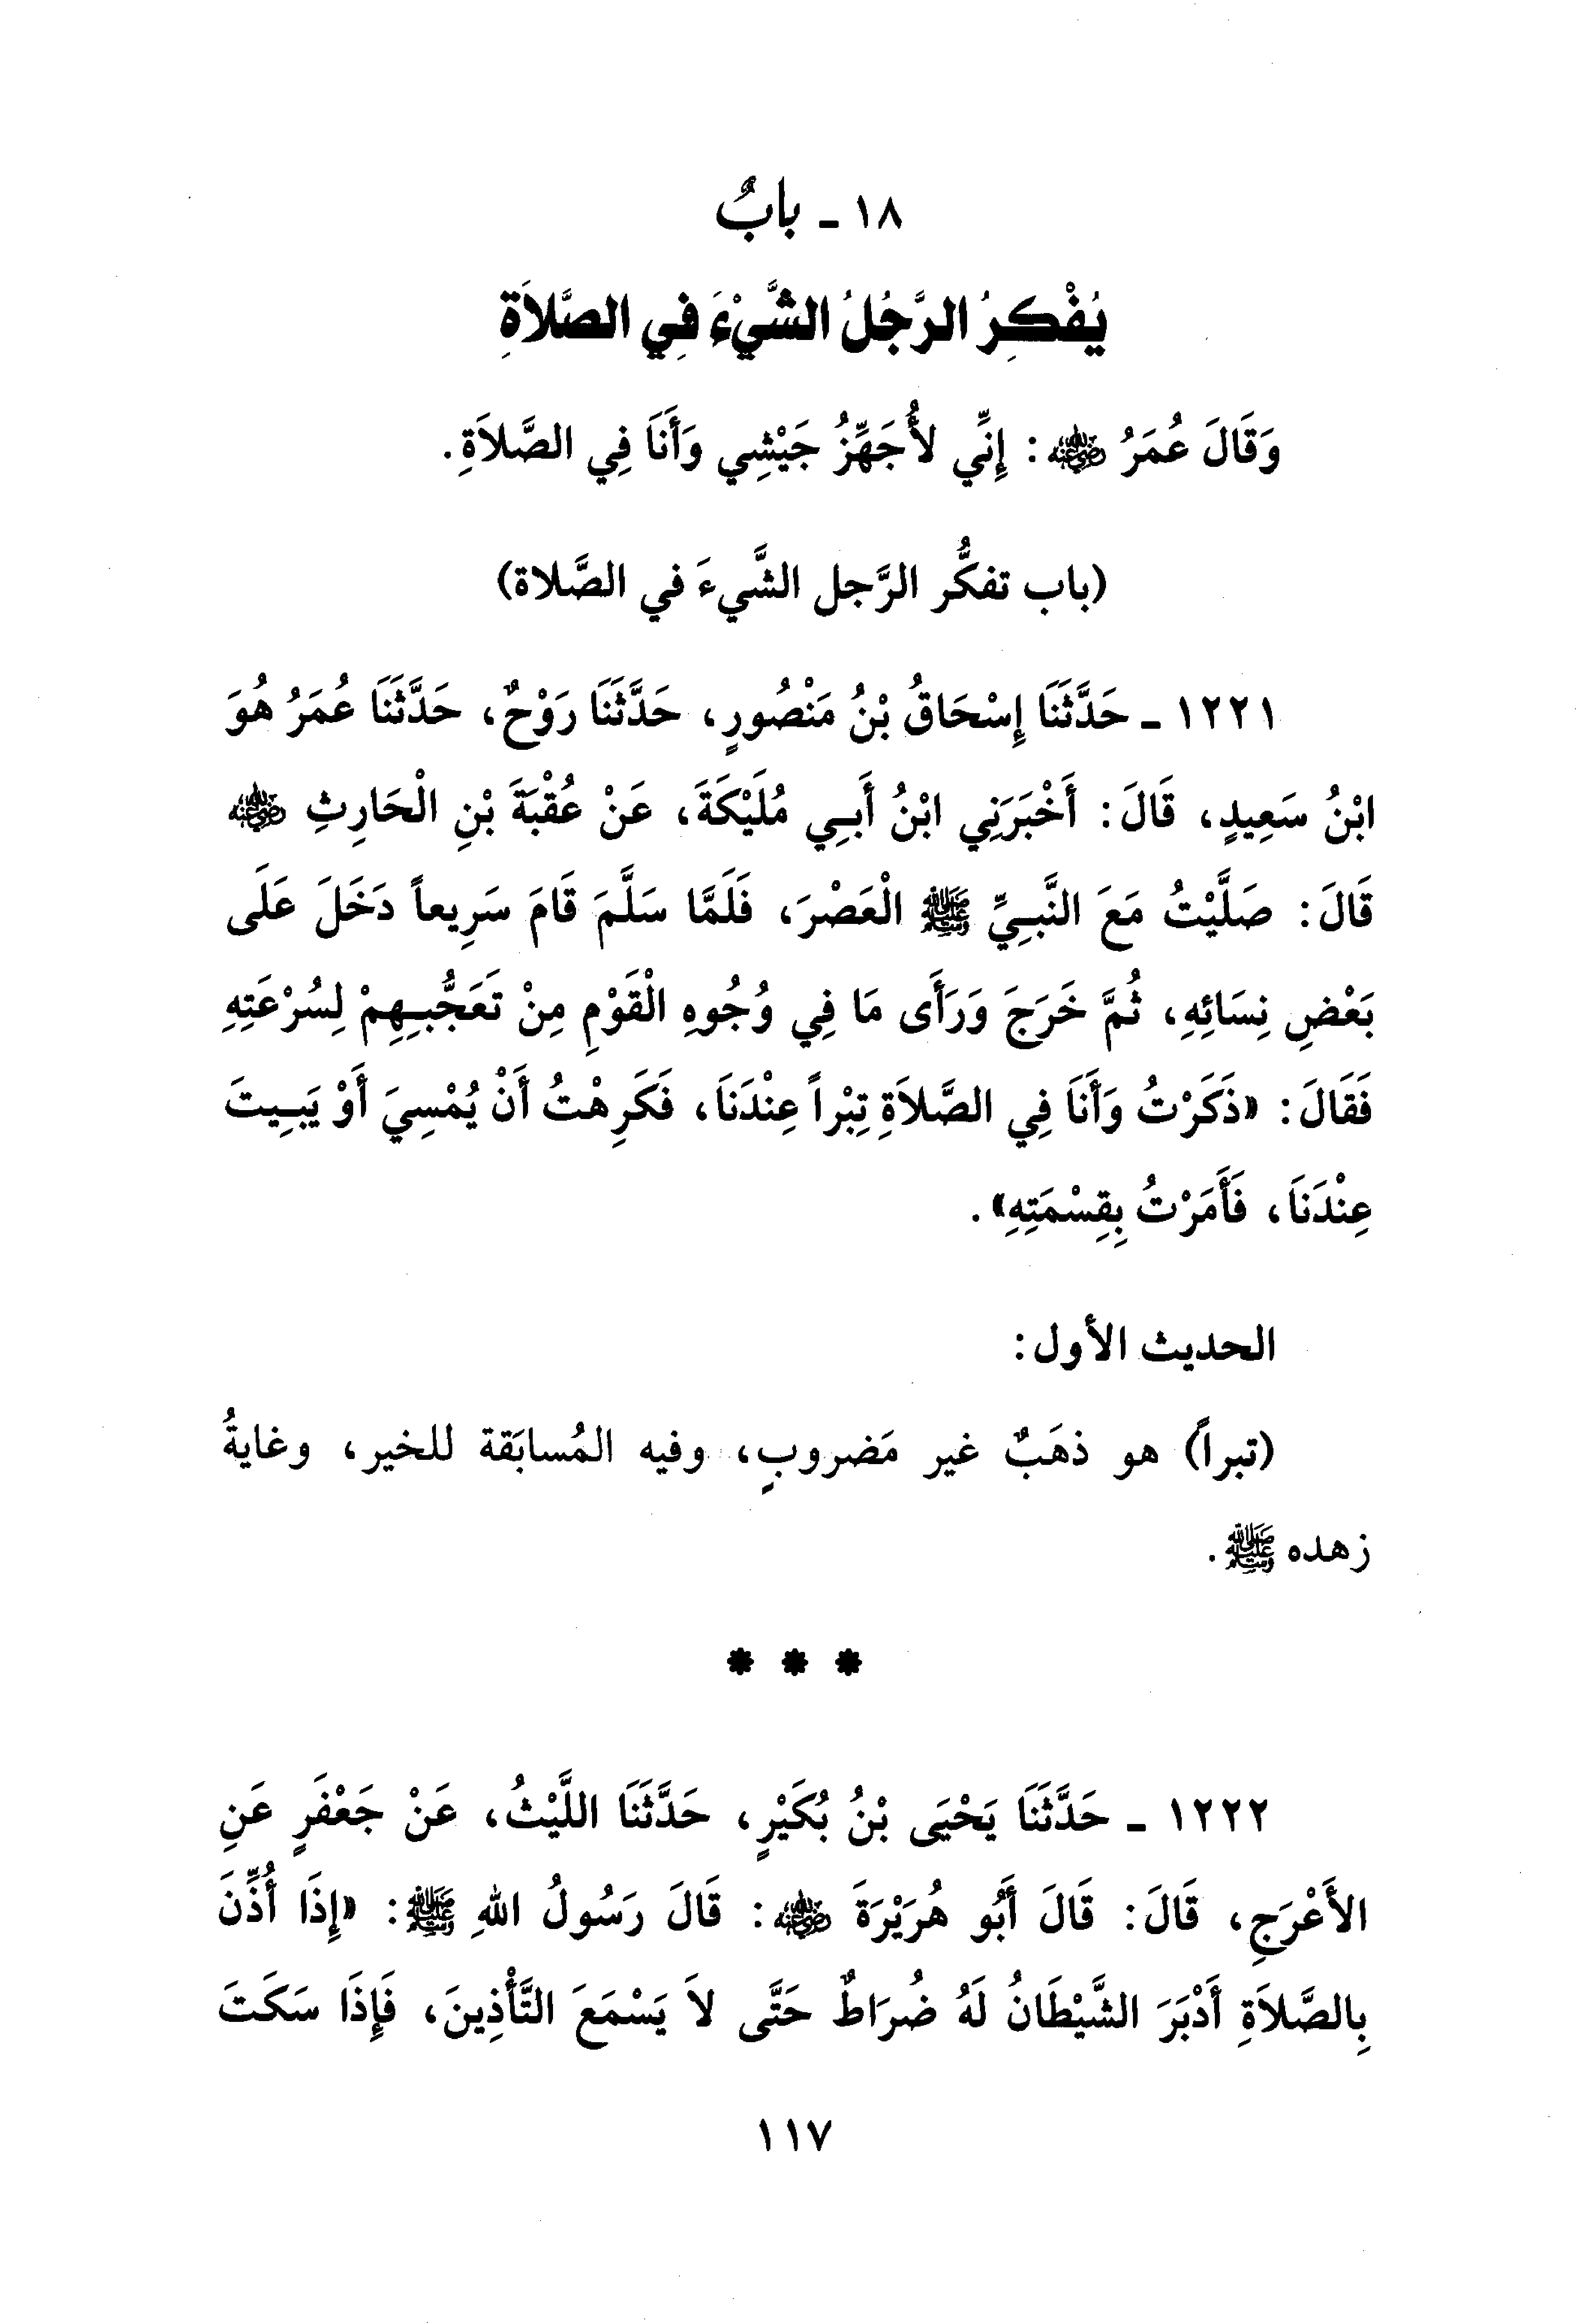 ١٨ - بابٌ
يُفْكِرُ الرَّجُلُ الشَّيْءَ فِي الصَّلاَةِ
وَقَالَ عُمَرُ رضي الله عنه: إِنِّي لأُجَهِّزُ جَيْشِي وَأَنَا فِي الصَّلاَةِ.
(باب تفكُّر الرَّجل الشَّيءَ في الصَّلاة)
١٢٢١ - حَدَّثَنَا إِسْحَاقُ بْنُ مَنْصُورٍ، حَدَّثَنَا رَوْحٌ، حَدَّثَنَا عُمَرُ هُوَ
ابْنُ سَعِيدٍ، قَالَ: أَخْبَرَنِي ابْنُ أَبِي مُلَيْكَةَ، عَنْ عُقْبَةَ بْنِ الْحَارِثِ رضي الله عنه
قَالَ: صَلَّيْتُ مَعَ النَّبِيِّ ﷺ الْعَصْرَ، فَلَمَّا سَلَّمَ قَامَ سَرِيعاً دَخَلَ عَلَى
بَعْضِ نِسَائِهِ، ثُمَّ خَرَجَ وَرَأَى مَا فِي وُجُوهِ الْقَوْمِ مِنْ تَعَجُّبِهِمْ لِسُرْعَتِهِ
فَقَالَ: «ذَكَرْتُ وَأَنَا فِي الصَّلاَةِ تِبْراً عِنْدَنَا، فَكَرِهْتُ أَنْ يُمْسِيَ أَوْ يَبِيتَ
عِنْدَنَا، فَأَمَرْتُ بِقِسْمَتِهِ».
الحديث الأول:
(تبراً) هو ذهَبٌ غير مَضروبٍ، وفيه المُسابَقة للخير، وغايةُ
زهده ﷺ.
* * *
١٢٢٢ - حَدَّثَنَا يَحْيَى بْنُ بُكَيْرٍ، حَدَّثَنَا اللَّيْثُ، عَنْ جَعْفَرٍ عَنِ
الأَعْرَجِ، قَالَ: قَالَ أَبُو هُرَيْرَةَ رضي الله عنه: قَالَ رَسُولُ اللهِ ﷺ: «إِذَا أُذِّنَ
بِالصَّلاَةِ أَدْبَرَ الشَّيْطَانُ لَهُ ضُرَاطٌ حَتَّى لاَ يَسْمَعَ التَّأْذِينَ، فَإِذَا سَكَتَ
١١٧